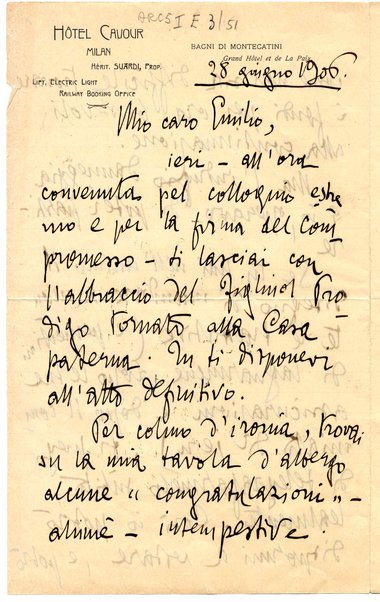 ARCS I E 3/51
HÔTEL CAVOUR
MILAN
HÉRIT. SUARDI, PROP.
LIFT. ELECTRIC LIGHT
RAILWAY BOOKING OFFICE
BAGNI DI MONTECATINI
Grand Hôtel et de La Paix
28 giugno 1906.
Mio caro Emilio,
ieri - all'ora
convenuta pel colloquio estre
mo e per la firma del Com
promesso - ti lasciai con
l'abbraccio del Figliuol Pro
digo tornato alla Casa
paterna. Tu ti disponevi
all'atto definitivo.
Per colmo d'ironia, trovai
su la mia tavola d'albergo
alcune "congratulazioni" -
ahimè - intempestive.